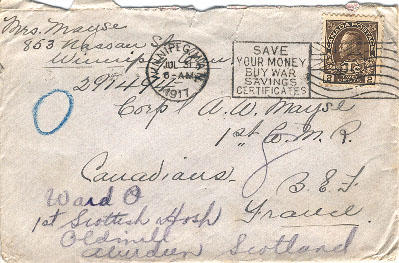 Mrs. Mayse
853 Nassau St
Winnipeg
WINNIPEG, MAN.
JUL 31
6-AM
1917
SAVE
YOUR MONEY
BUY WAR
SAVINGS
CERTIFICATES
CANADA POSTAGE
1Tc
2 2
Corpl A. W. Mayse
1st C.M.R.
Canadians.
B.E.F
France.
Ward O
1st Scottish Hosp
Oldmill
Aberdeen Scotland